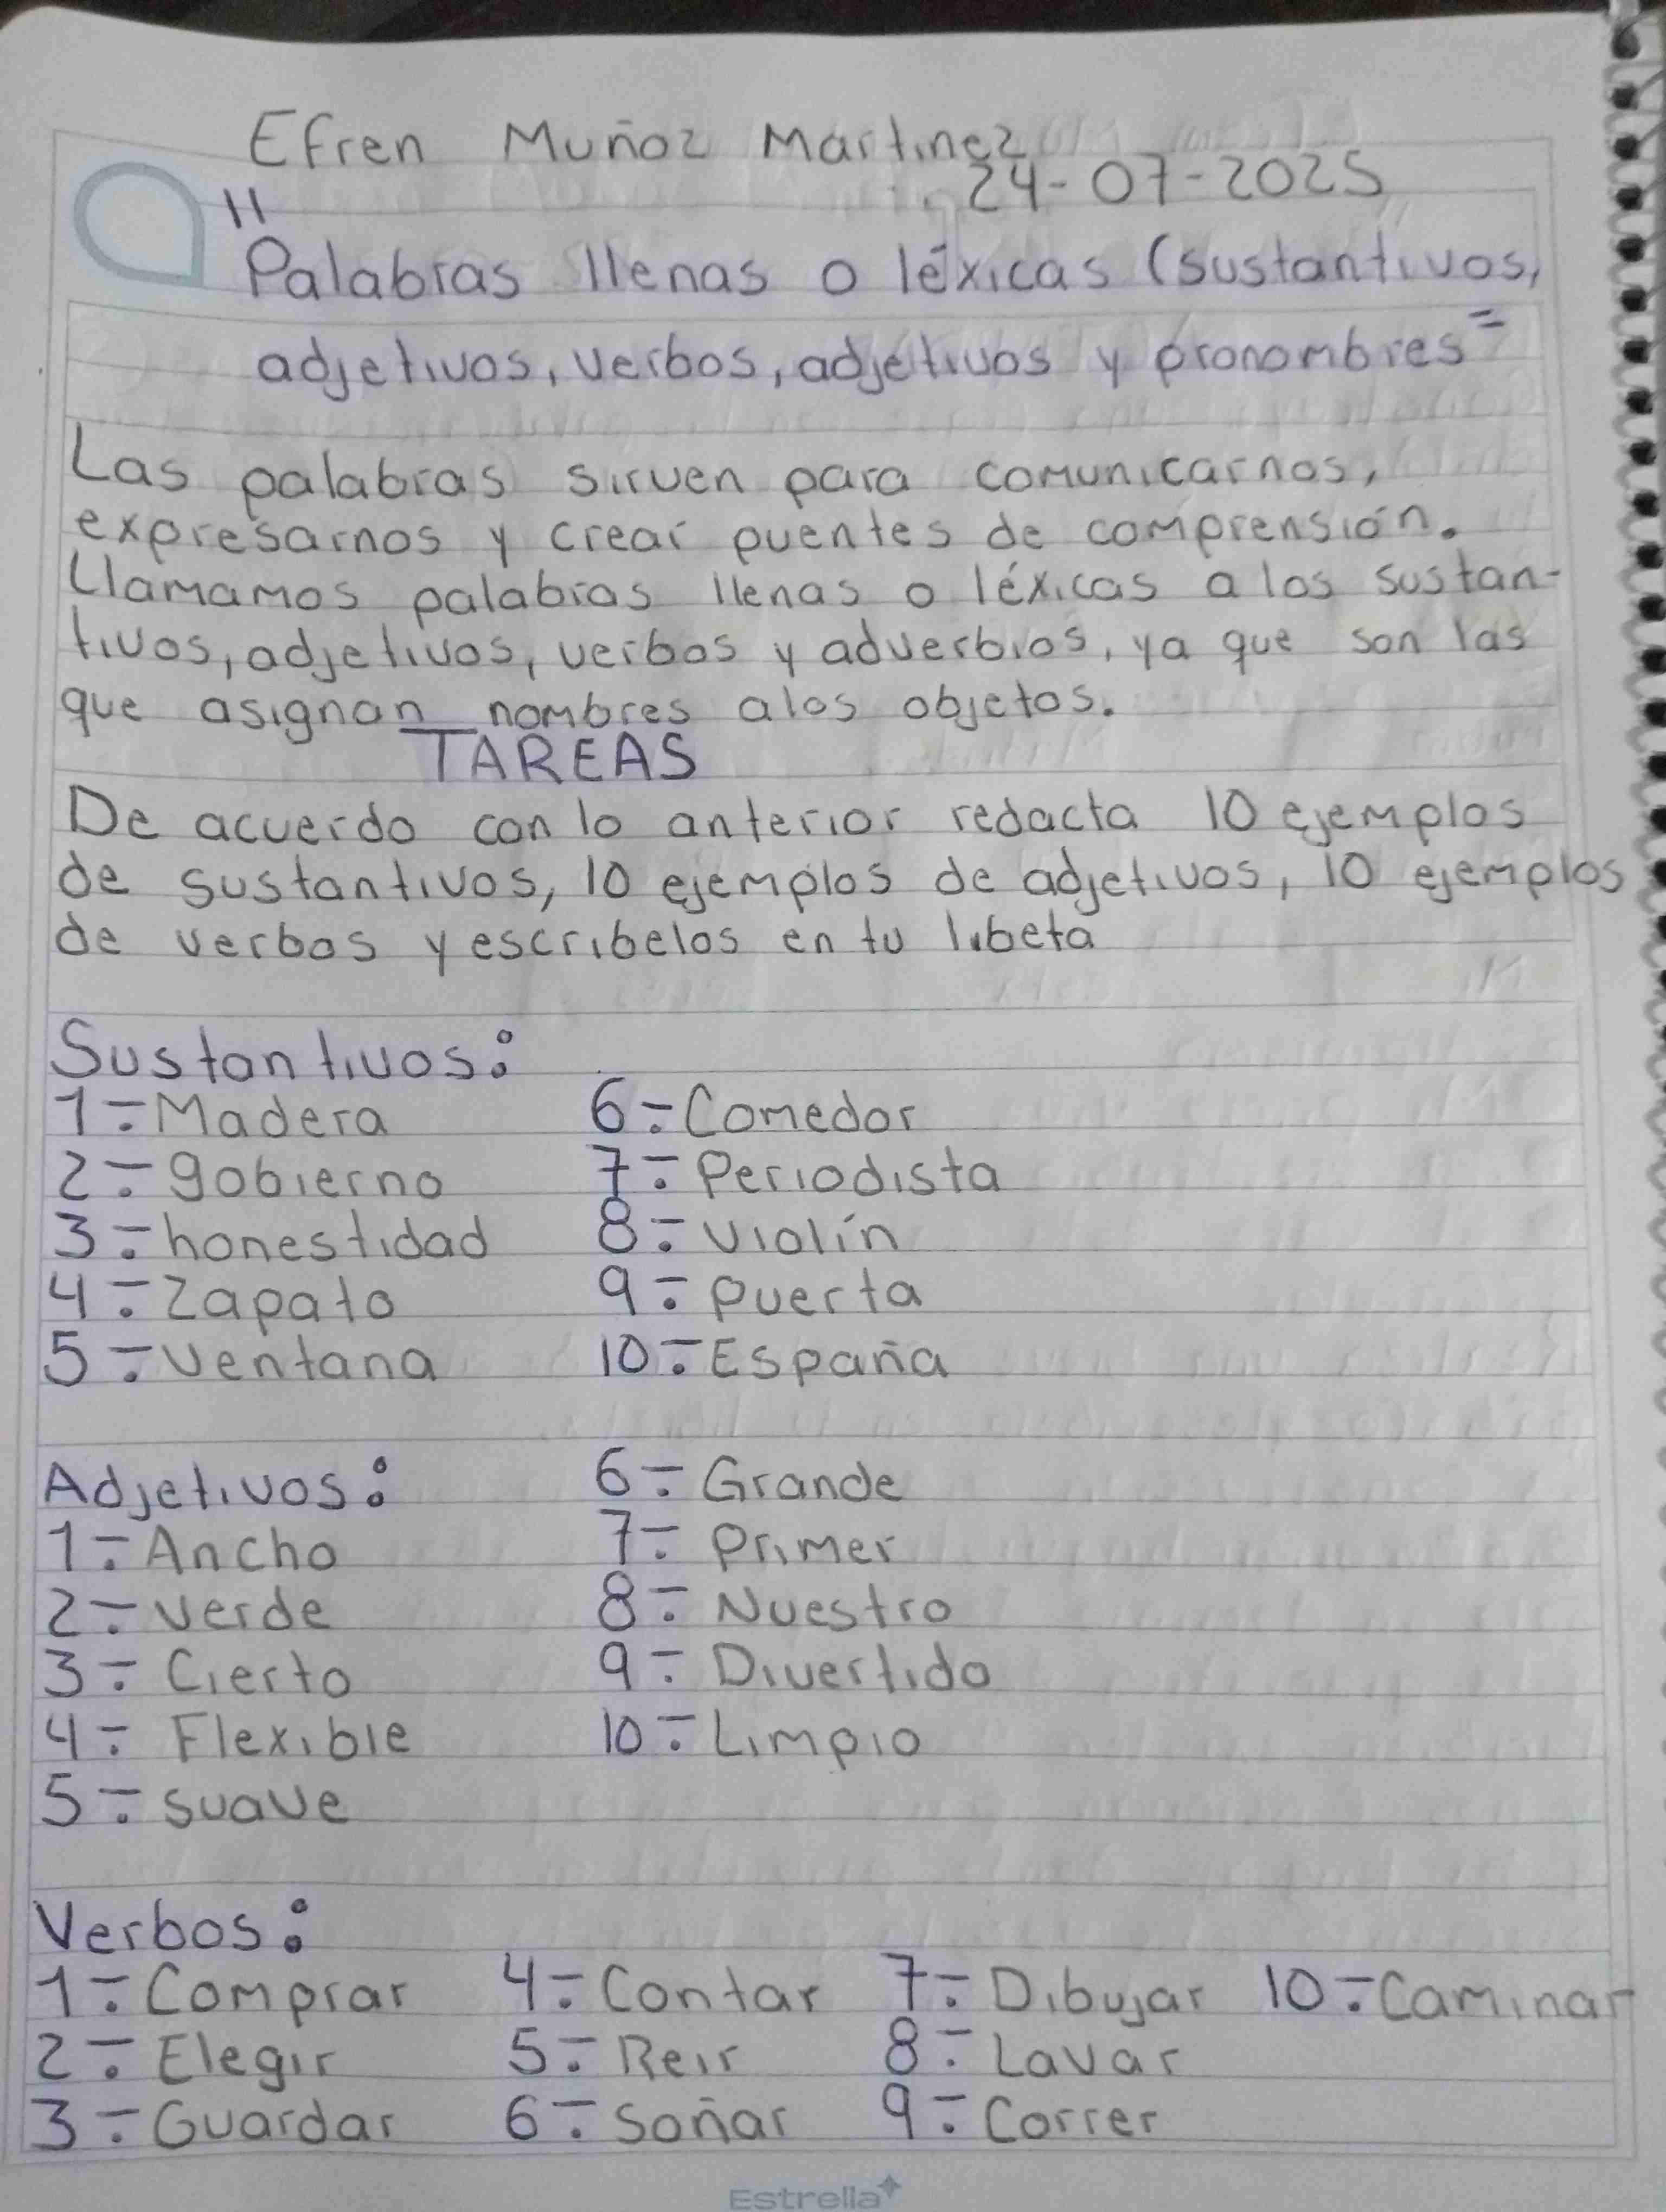 Efren Muñoz Martinez
24-07-2025
"Palabras llenas o léxicas (sustantivos,
adjetivos, verbos, adjetivos y pronombres"
Las palabras sirven para comunicarnos,
expresarnos y crear puentes de comprensión.
Llamamos palabras llenas o léxicas a los sustan-
tivos, adjetivos, verbos y adverbios, ya que son las
que asignan nombres alos objetos.
TAREAS
De acuerdo con lo anterior redacta 10 ejemplos
de sustantivos, 10 ejemplos de adjetivos, 10 ejemplos
de verbos y escribelos en tu libeta
Sustantivos:
1.- Madera
2.- gobierno
3.- honestidad
4.- Zapato
5.- Ventana
6.- Comedor
7.- Periodista
8.- Violín
9.- Puerta
10.- España
Adjetivos:
1.- Ancho
2.- Verde
3.- Cierto
4.- Flexible
5.- suave
6.- Grande
7.- Primer
8.- Nuestro
9.- Divertido
10.- Limpio
Verbos:
1.- Comprar
2.- Elegir
3.- Guardar
4.- Contar
5.- Reir
6.- Soñar
7.- Dibujar
8.- Lavar
9.- Correr
10.- Caminar
Estrella